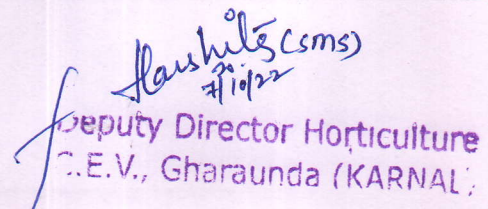 (SMS)
7/10/22
Deputy Director Horticulture
C.E.V., Gharaunda (KARNAL)